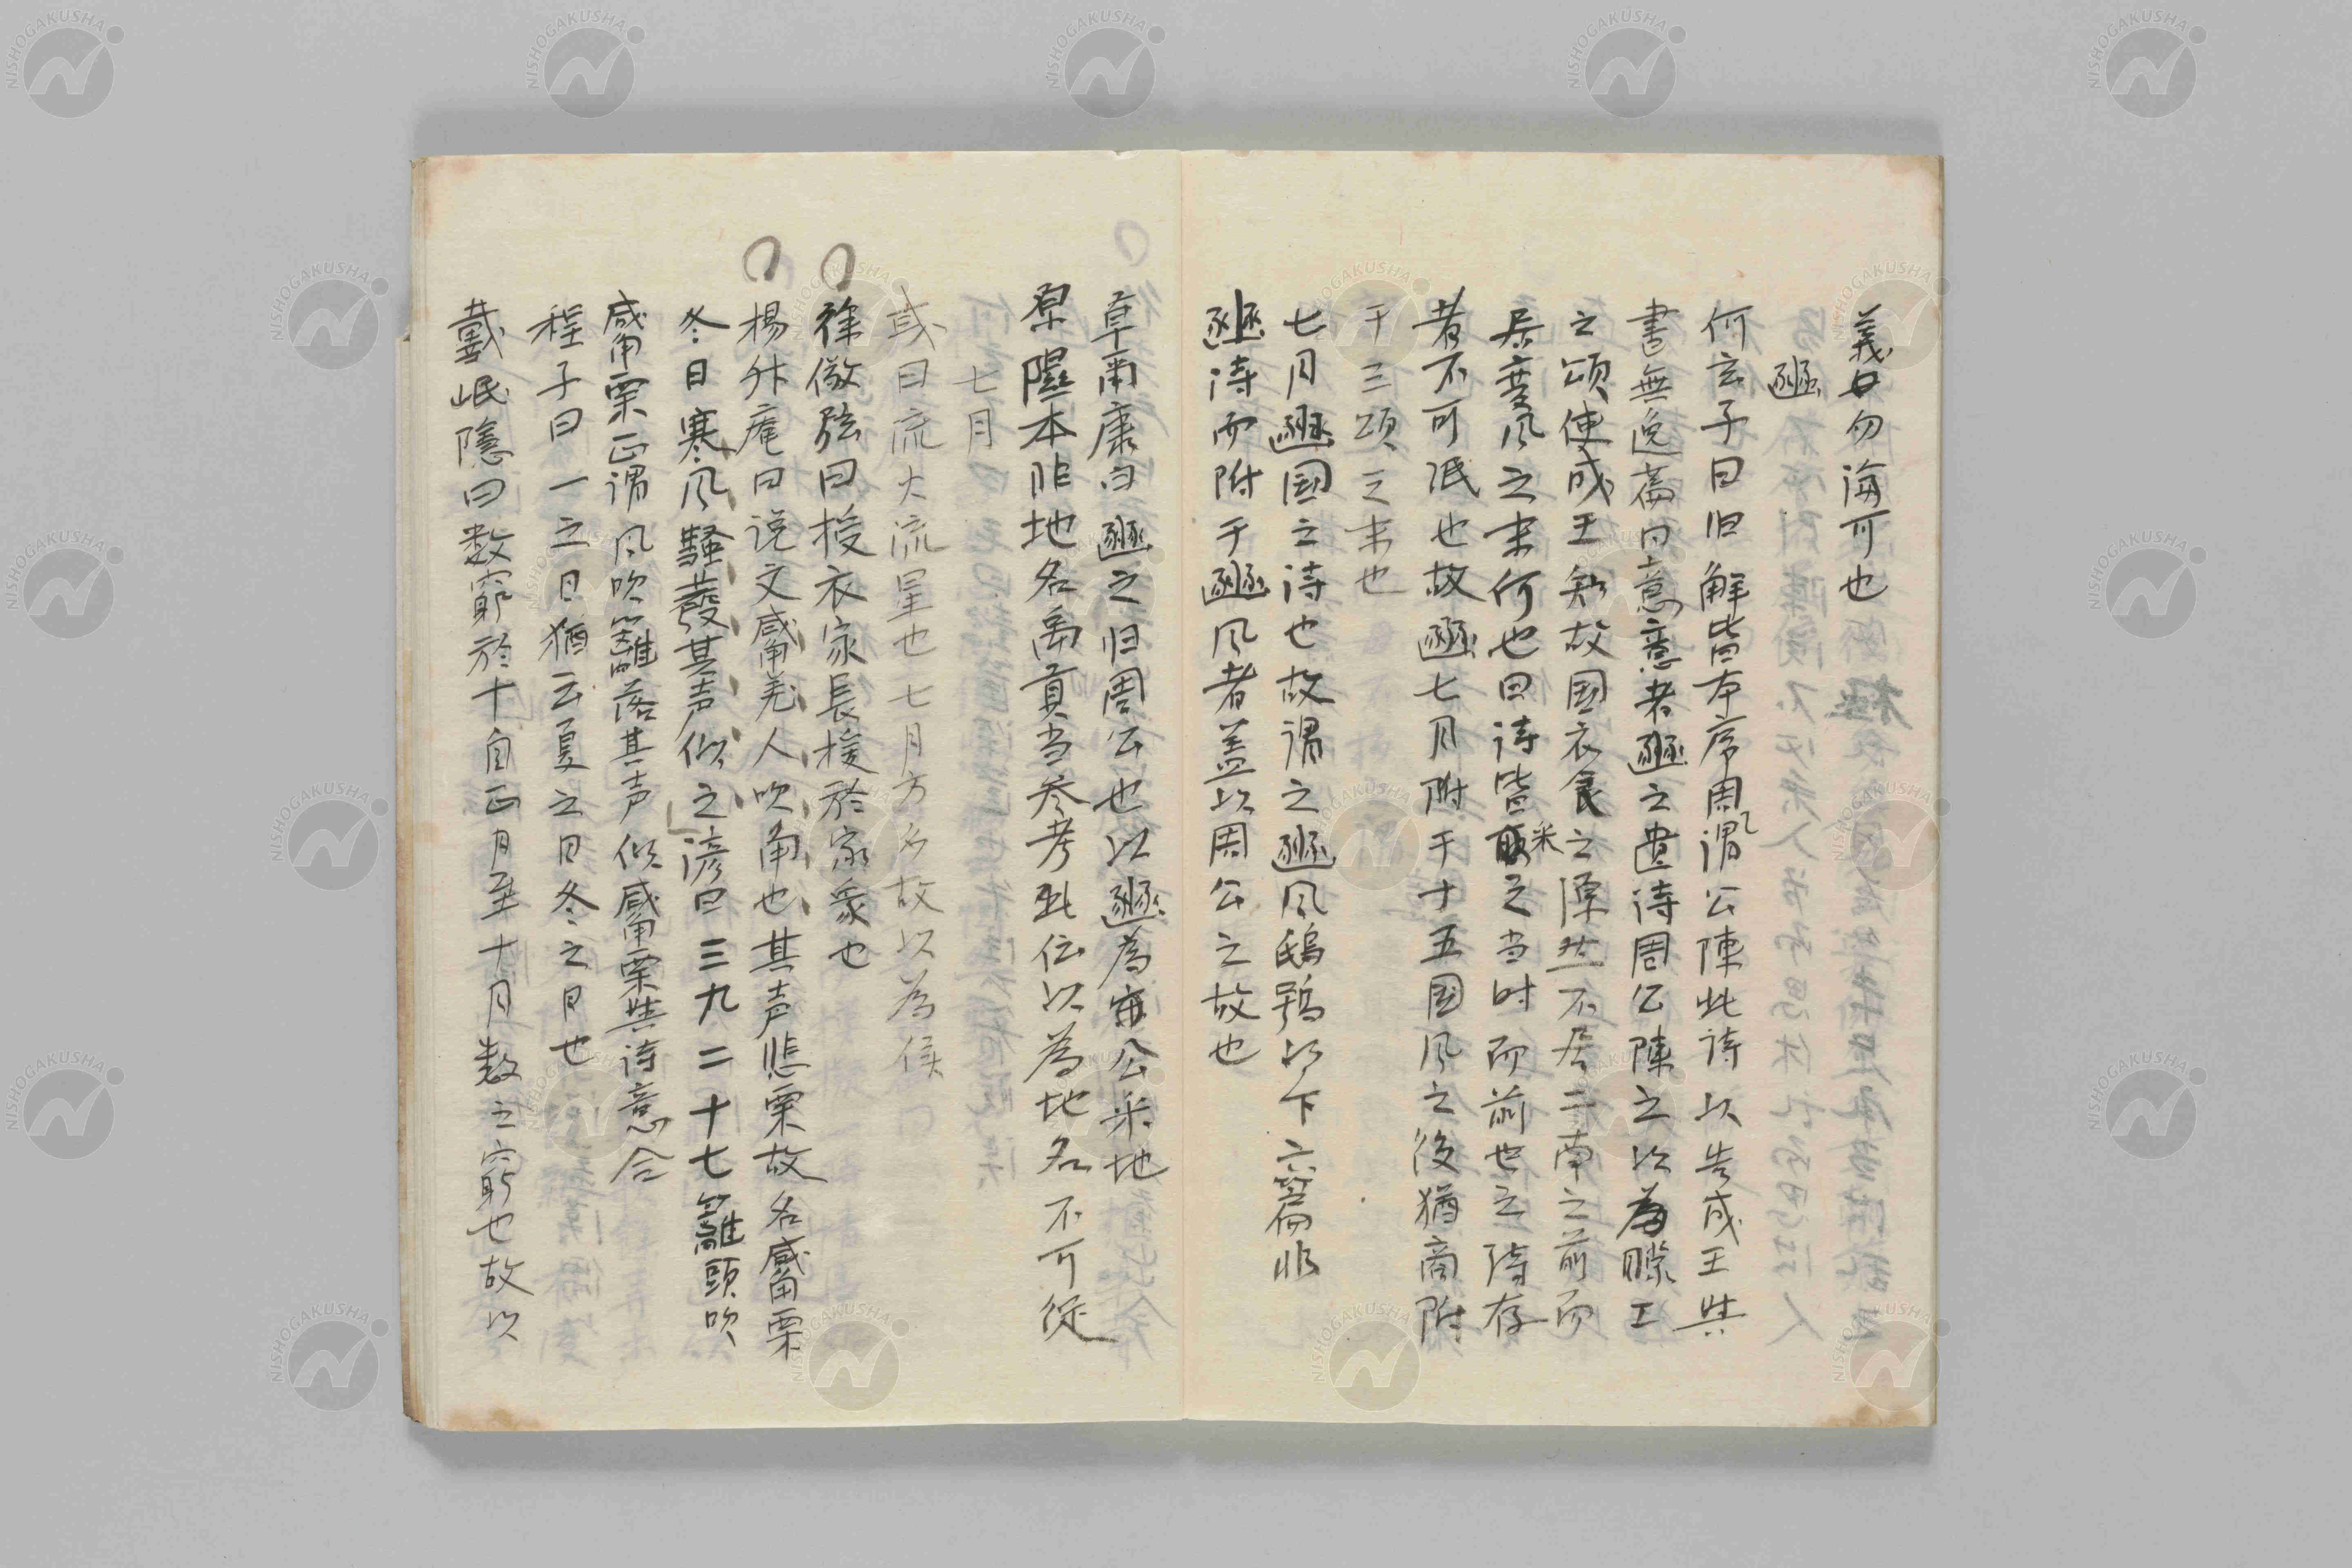 義勿論可也
豳
何玄子曰旧解皆本序周謂公陳此詩以告成王與
書無逸篇同意意者豳之遺詩周公陳之以為矇工
之頌使成王知故国衣食之源然不居二南之前而
居変风之末何也曰詩皆采之当时而前世之詩存
者不可泯也故豳七月附于十五国风之後猶商附
于三頌之末也
七月豳国之詩也故謂之豳风鴟鴞以下六篇非
豳诗而附于豳风者蓋以周公之故也
章甫康曰豳之归周公也以豳為周公采地
原隰本非地名禹貢当参考此伝以為地名不可従
七月
或曰流火流星也七月方多故以為候
徐儆弦曰授衣家長授於家衆也
楊升庵曰说文觱羌人吹角也其声悲栗故名觱栗
冬日寒风騒發其声似之諺曰三九二十七籬頭吹
觱栗正謂风吹籬落其声似觱栗與诗意合
程子曰一之日猶云夏之日冬之日也
戴岷隱曰数窮於十自正月至十月数之窮也故以
NISHOGAKUSHA